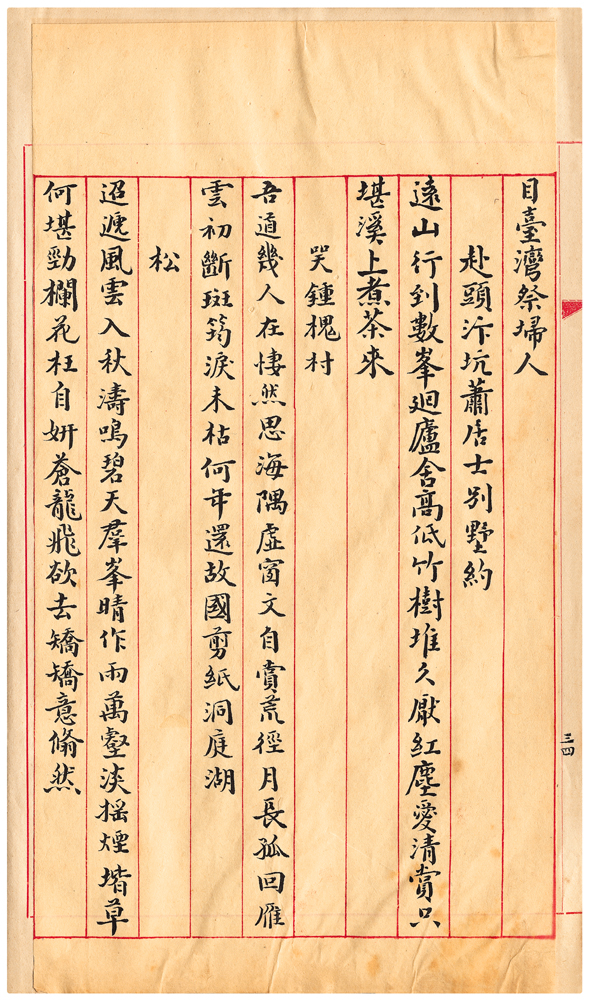 目臺灣祭埽人
赴頭汴坑蕭居士別墅約
遠山行到數峯迴廬舍高低竹樹堆久厭紅塵愛清賞只
堪溪上煮茶來
哭鍾槐村
吾道幾人在悽然思海隅虛窗文自賞荒徑月長孤回雁
雲初斷斑筠淚未枯何年還故國剪紙洞庭湖
松
迢遞風雲入秋濤鳴碧天羣峯晴作雨萬壑淡搖煙堦草
何堪勁欄花枉自妍蒼龍飛欲去矯矯意翛然
三四